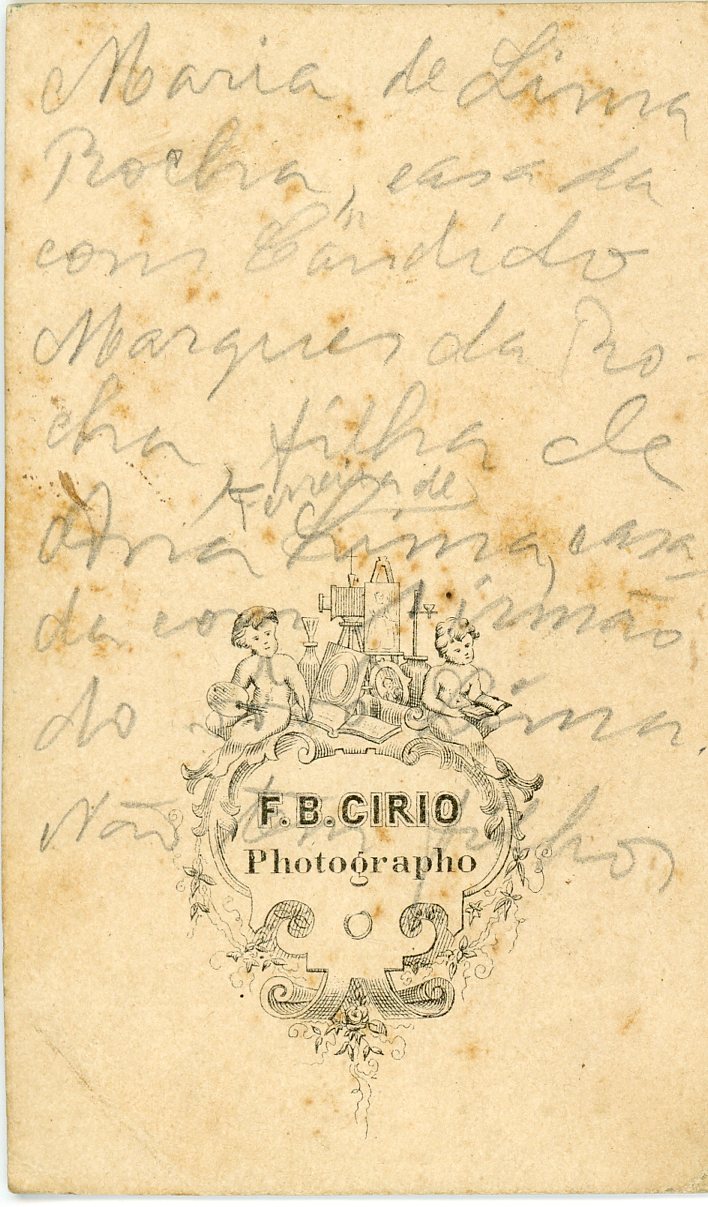 Maria de Lima
Rocha, casada
com Cândido
Marques da Ro-
cha, filha de
Ferreira de
Ana Lima, casa-
da com irmão
do Lima.
Não filhos
F.B. CIRIO
Photographo